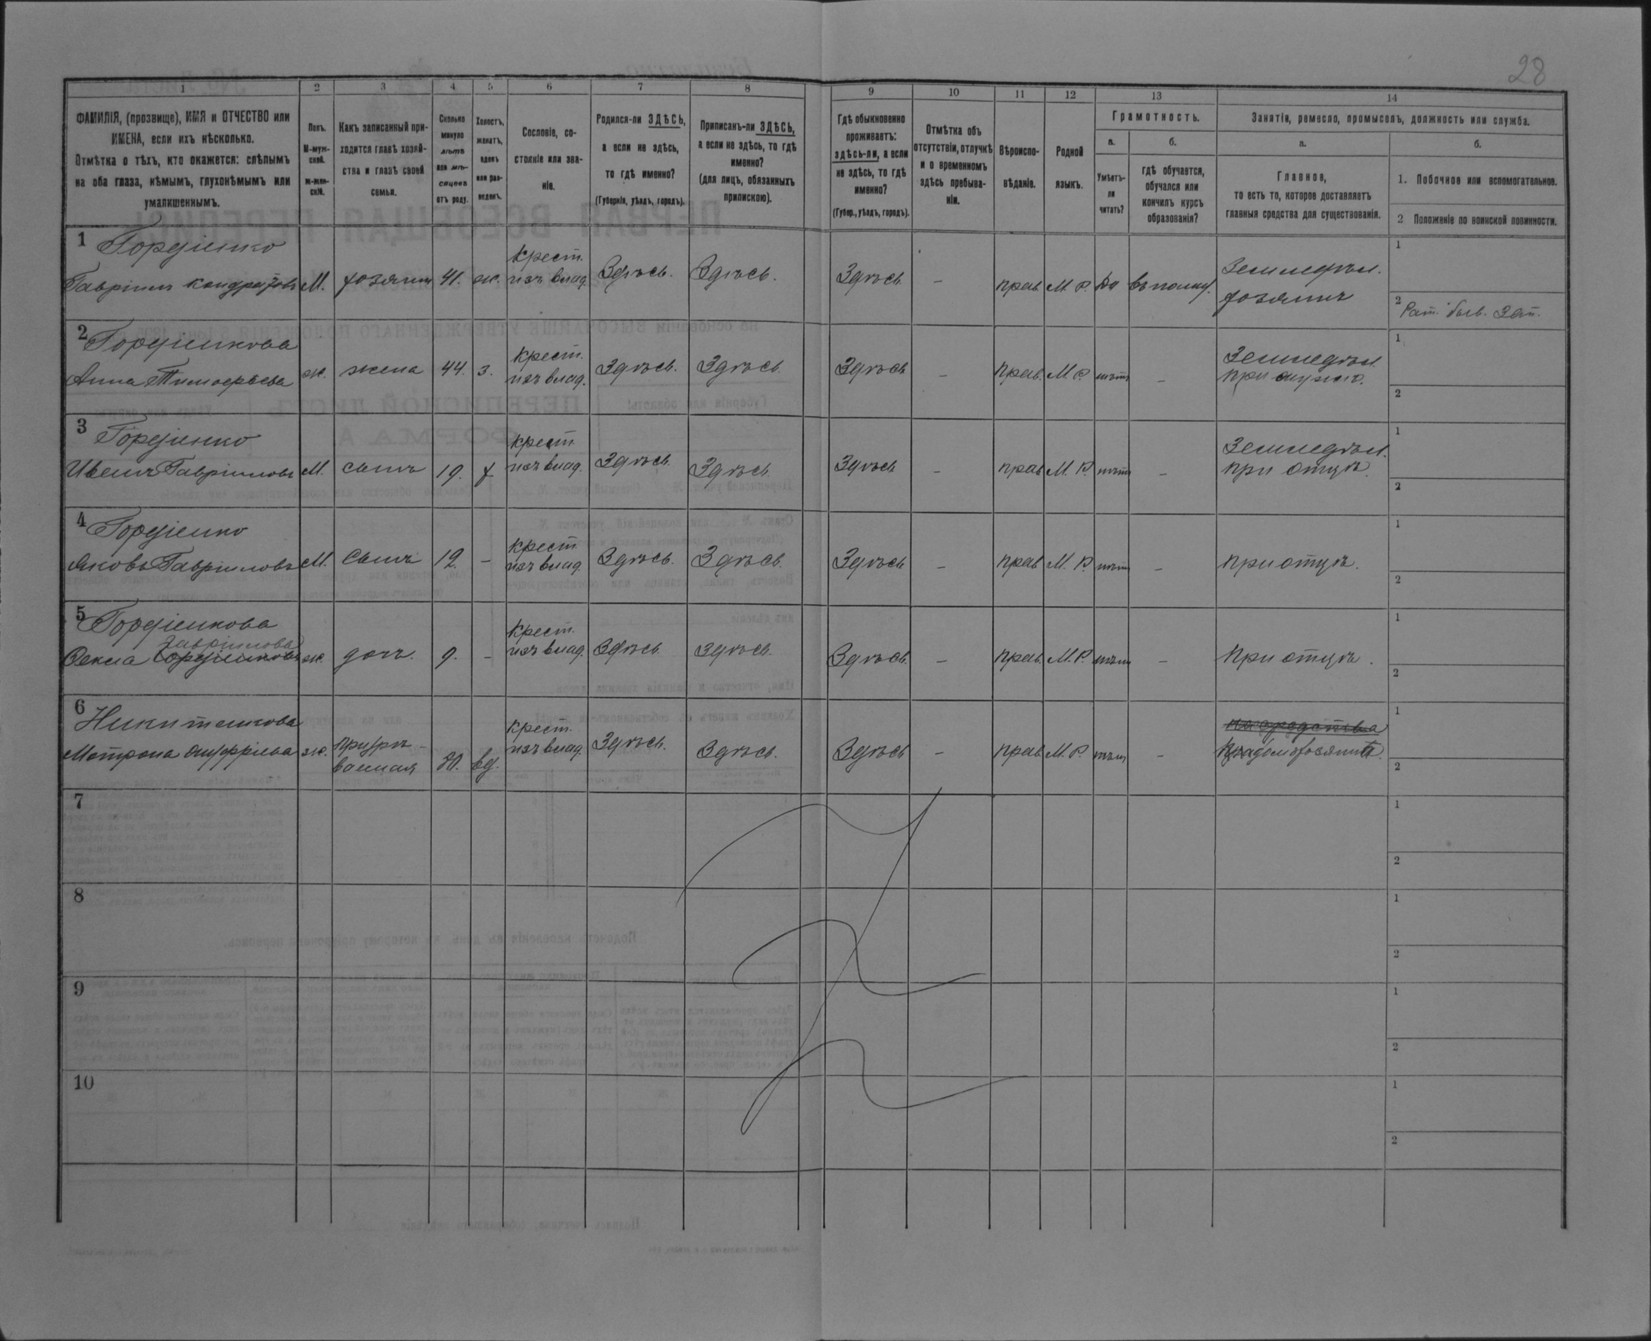 28
1 2 3 4 5 6 7 8 9 10 11 12 13 14
ФАМИЛІЯ, (прозвище), ИМЯ и ОТЧЕСТВО или
ИМЕНА, если ихъ нѣсколько.
Отмѣтка о тѣхъ, кто окажется: слѣпымъ
на оба глаза, нѣмымъ, глухонѣмымъ или
умалишеннымъ.
Полъ.
М-муж-
ской.
Ж-жен-
скій.
Какъ записанный при-
ходится главѣ хозяй-
ства и главѣ своей
семьи.
Сколько
минуло
лѣтъ
или мѣ-
сяцевъ
отъ роду.
Холостъ,
женатъ,
вдовъ
или раз-
веденъ.
Сословіе, со-
стояніе или зва-
ніе.
Родился-ли ЗДѢСЬ,
а если не здѣсь,
то гдѣ именно?
(Губернія, уѣздъ, городъ).
Приписанъ-ли ЗДѢСЬ,
а если не здѣсь, то гдѣ
именно?
(для лицъ, обязанныхъ
припискою).
Гдѣ обыкновенно
проживаетъ:
здѣсь-ли, а если
не здѣсь, то гдѣ
именно?
(Губер., уѣздъ, городъ).
Отмѣтка объ
отсутствіи, отлучкѣ
и о временномъ
здѣсь пребыва-
ніи.
Вѣроиспо-
вѣданіе.
Родной
языкъ.
Грамотность.
а.
Умѣетъ-
ли
читать?
б.
гдѣ обучается,
обучался или
кончилъ курсъ
образованія?
Занятіе, ремесло, промыселъ, должность или служба.
а.
Главное,
то есть то, которое доставляетъ
главныя средства для существованія.
б.
1. Побочное или вспомогательное.
2 Положеніе по воинской повинности.
1 Гордіенко
Гавріилъ Кондратовъ М. хозяинъ 41. ж. крест. изъ влад. Здѣсь. Здѣсь. Здѣсь - прав. М. Р. да въ полку. Земледѣл. хозяинъ
1
2
2 Гордіенкова
Анна Тимофѣева ж. жена 44. з. крест. изъ влад. Здѣсь. Здѣсь Здѣсь - прав. М. Р. нѣтъ - Земледѣл. при мужѣ.
1
2
3 Гордіенко
Иванъ Гавріиловъ М. сынъ 19. х крест. изъ влад. Здѣсь. Здѣсь Здѣсь - прав М. Р. нѣтъ - Земледѣл. при отцѣ.
1
2
4 Гордіенко
Яковъ Гавріиловъ М. сынъ 12. - крест. изъ влад. Здѣсь. Здѣсь. Здѣсь - прав М. Р. нѣтъ - при отцѣ.
1
2
5 Гордіенкова
Гавріилова
ж. дочь 9. - крест. изъ влад. Здѣсь Здѣсь. Здѣсь. - прав М. Р. нѣтъ - при отцѣ.
1
2
6 Никитенкова
Мотрона ж. призрѣ-
ваемая вд. крест. изъ влад. Здѣсь. Здѣсь. Здѣсь - прав М. Р. нѣтъ -
1
2
7
1
2
8
1
2
9
1
2
10
1
2